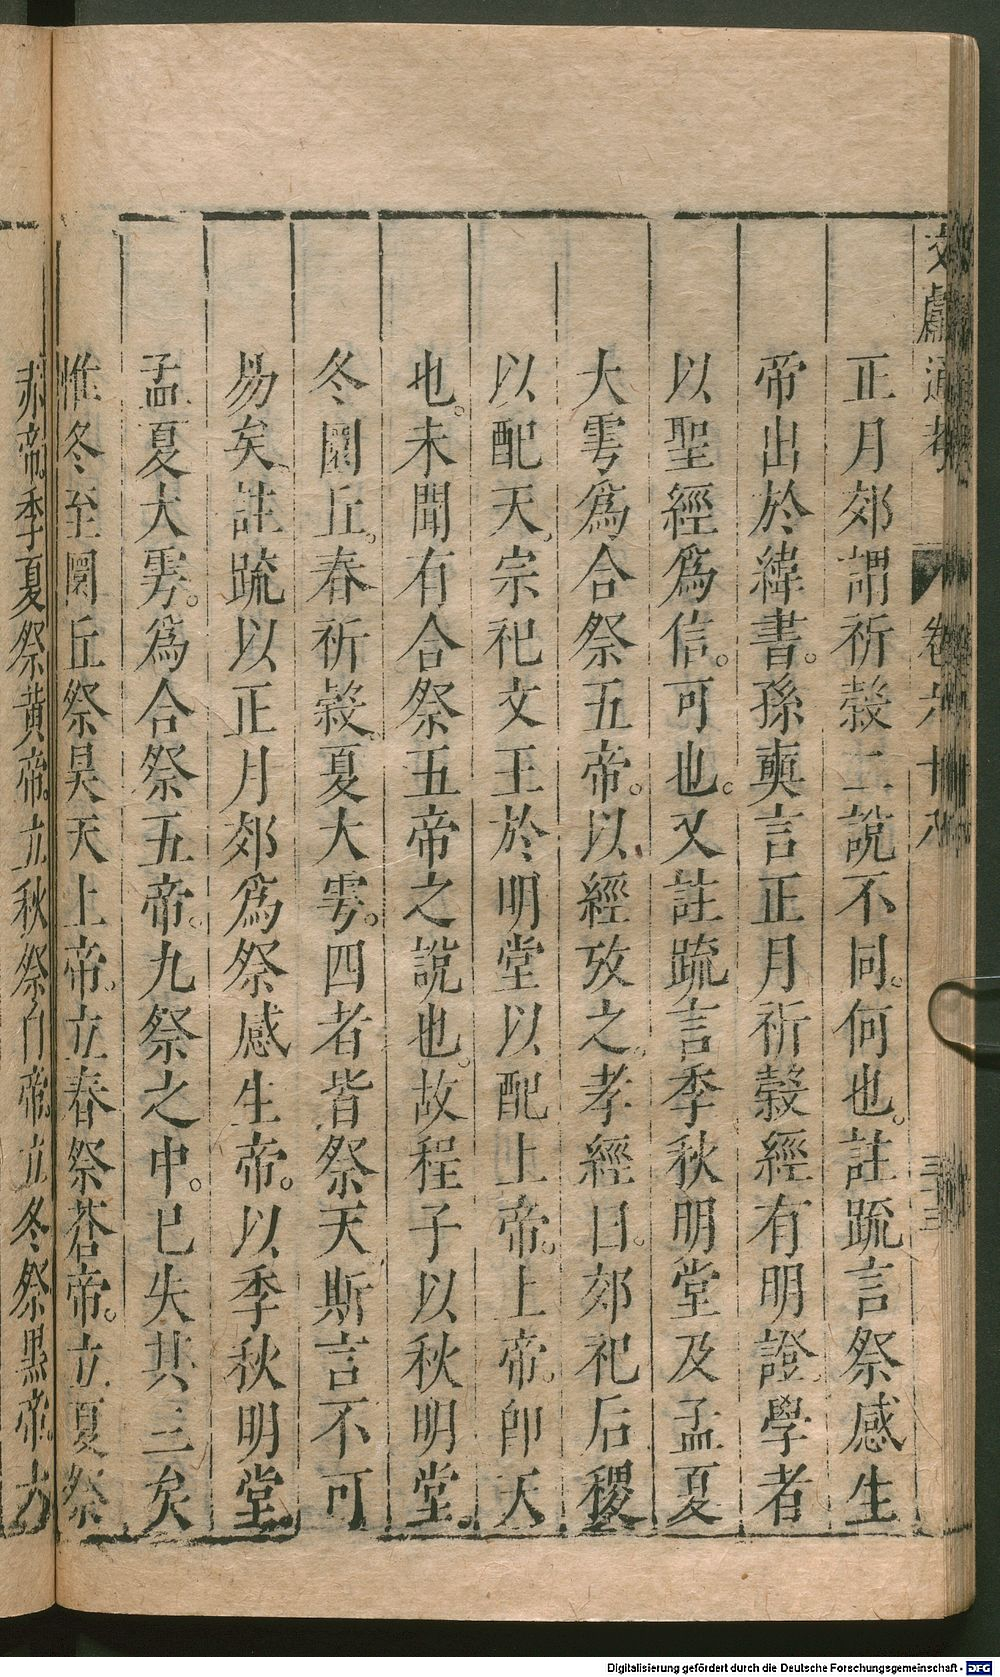 文獻通考 卷六十八 三十三
正月郊謂祈穀二說不同。何也。註疏言祭感生
帝出於緯書。孫奭言正月祈穀經有明證。學者
以聖經爲信。可也。又註疏言季秋明堂及孟夏
大雩爲合祭五帝。以經攷之。孝經曰。郊祀后稷
以配天。宗祀文王於明堂以配上帝。上帝。即天
也。未聞有合祭五帝之說也。故程子以秋明堂。
冬圜丘。春祈穀。夏大雩。四者皆祭天斯言不可
易矣。註疏以正月郊爲祭感生帝。以季秋明堂
孟夏大雩。爲合祭五帝。九祭之中。已失其三矣
惟冬至圜丘祭昊天上帝。立春祭蒼帝。立夏祭
赤帝。季夏祭黃帝。立秋祭白帝。立冬祭黑帝。
Digitalisierung gefördert durch die Deutsche Forschungsgemeinschaft - DFG